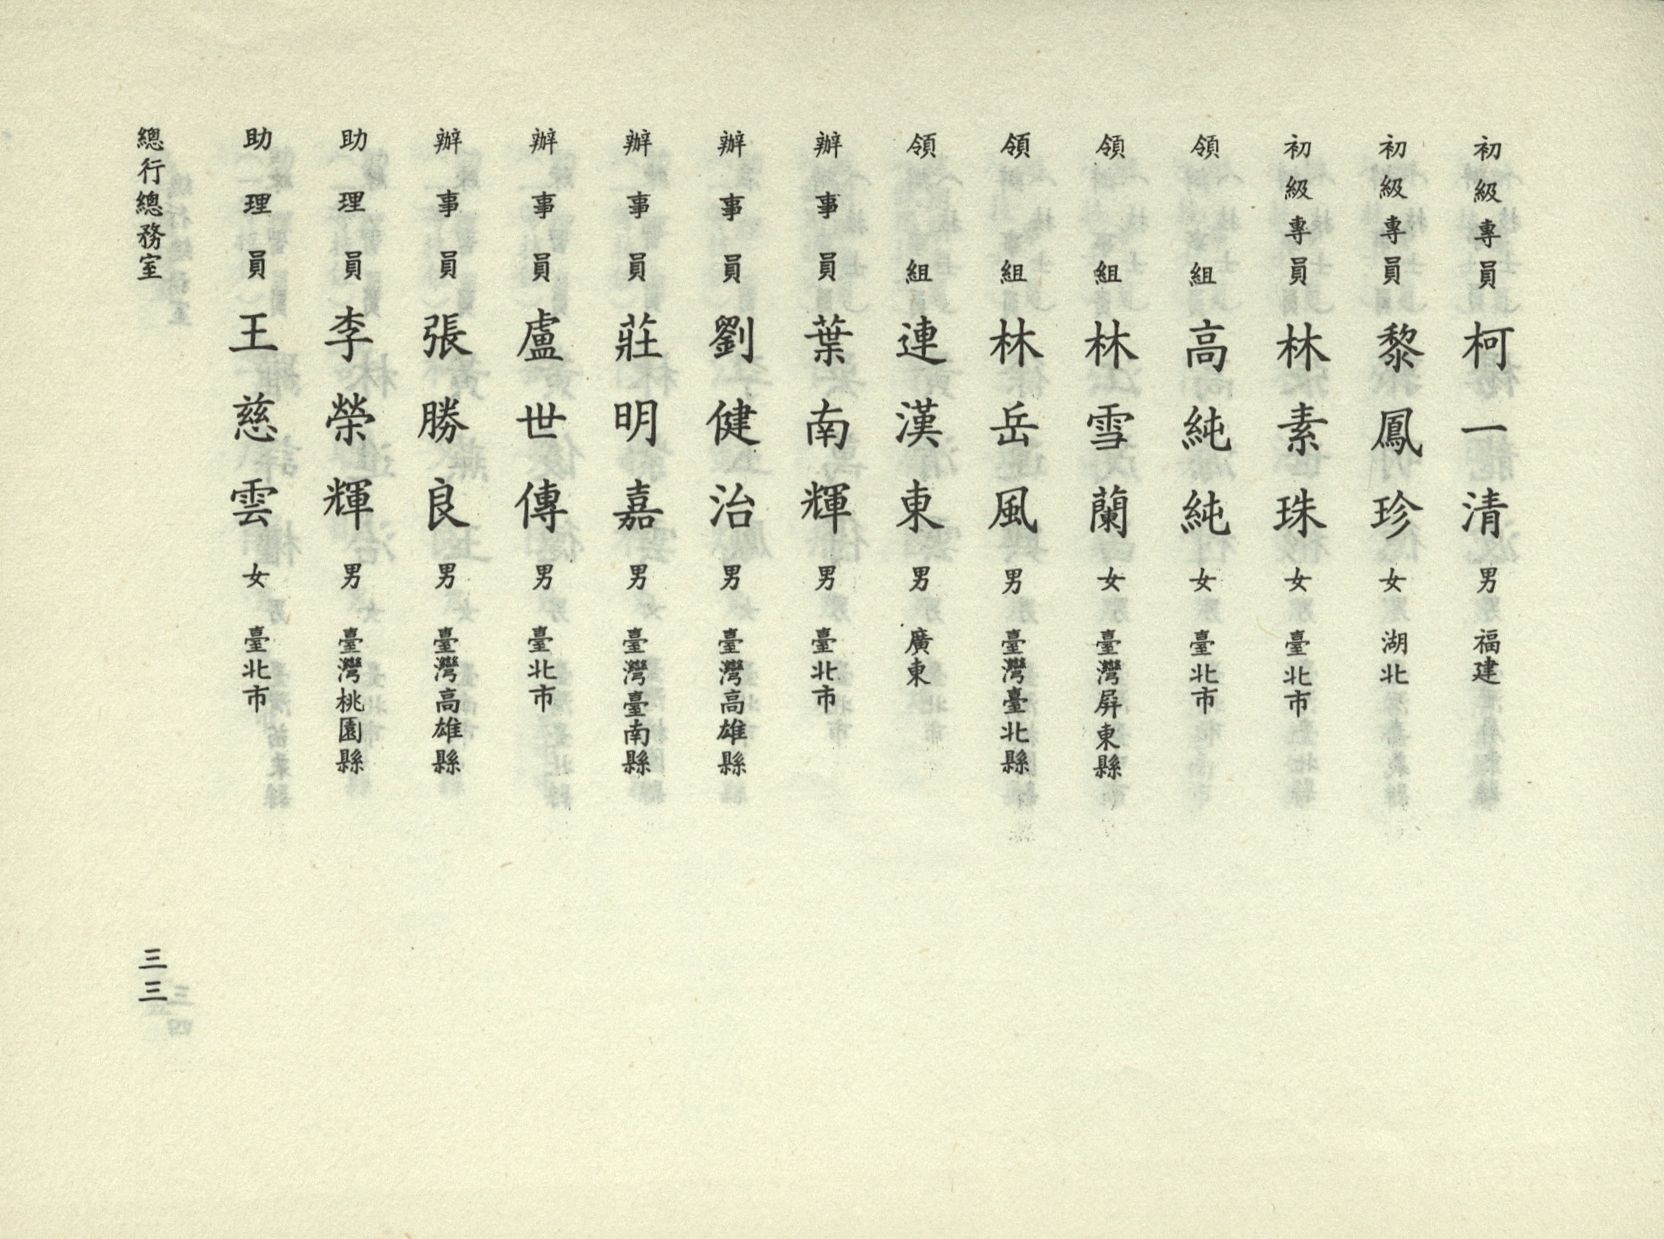 初級專員 柯一清 男 福建
初級專員 黎鳳珍 女 湖北
初級專員 林素珠 女 臺北市
領組 高純純 女 臺北市
領組 林雪蘭 女 臺灣屏東縣
領組 林岳風 男 臺灣臺北縣
領組 連漢東 男 廣東
辦事員 葉南輝 男 臺北市
辦事員 劉健治 男 臺灣高雄縣
辦事員 莊明嘉 男 臺灣臺南縣
辦事員 盧世傳 男 臺北市
辦事員 張勝良 男 臺灣高雄縣
助理員 李榮輝 男 臺灣桃園縣
助理員 王慈雲 女 臺北市
總行總務室 三三